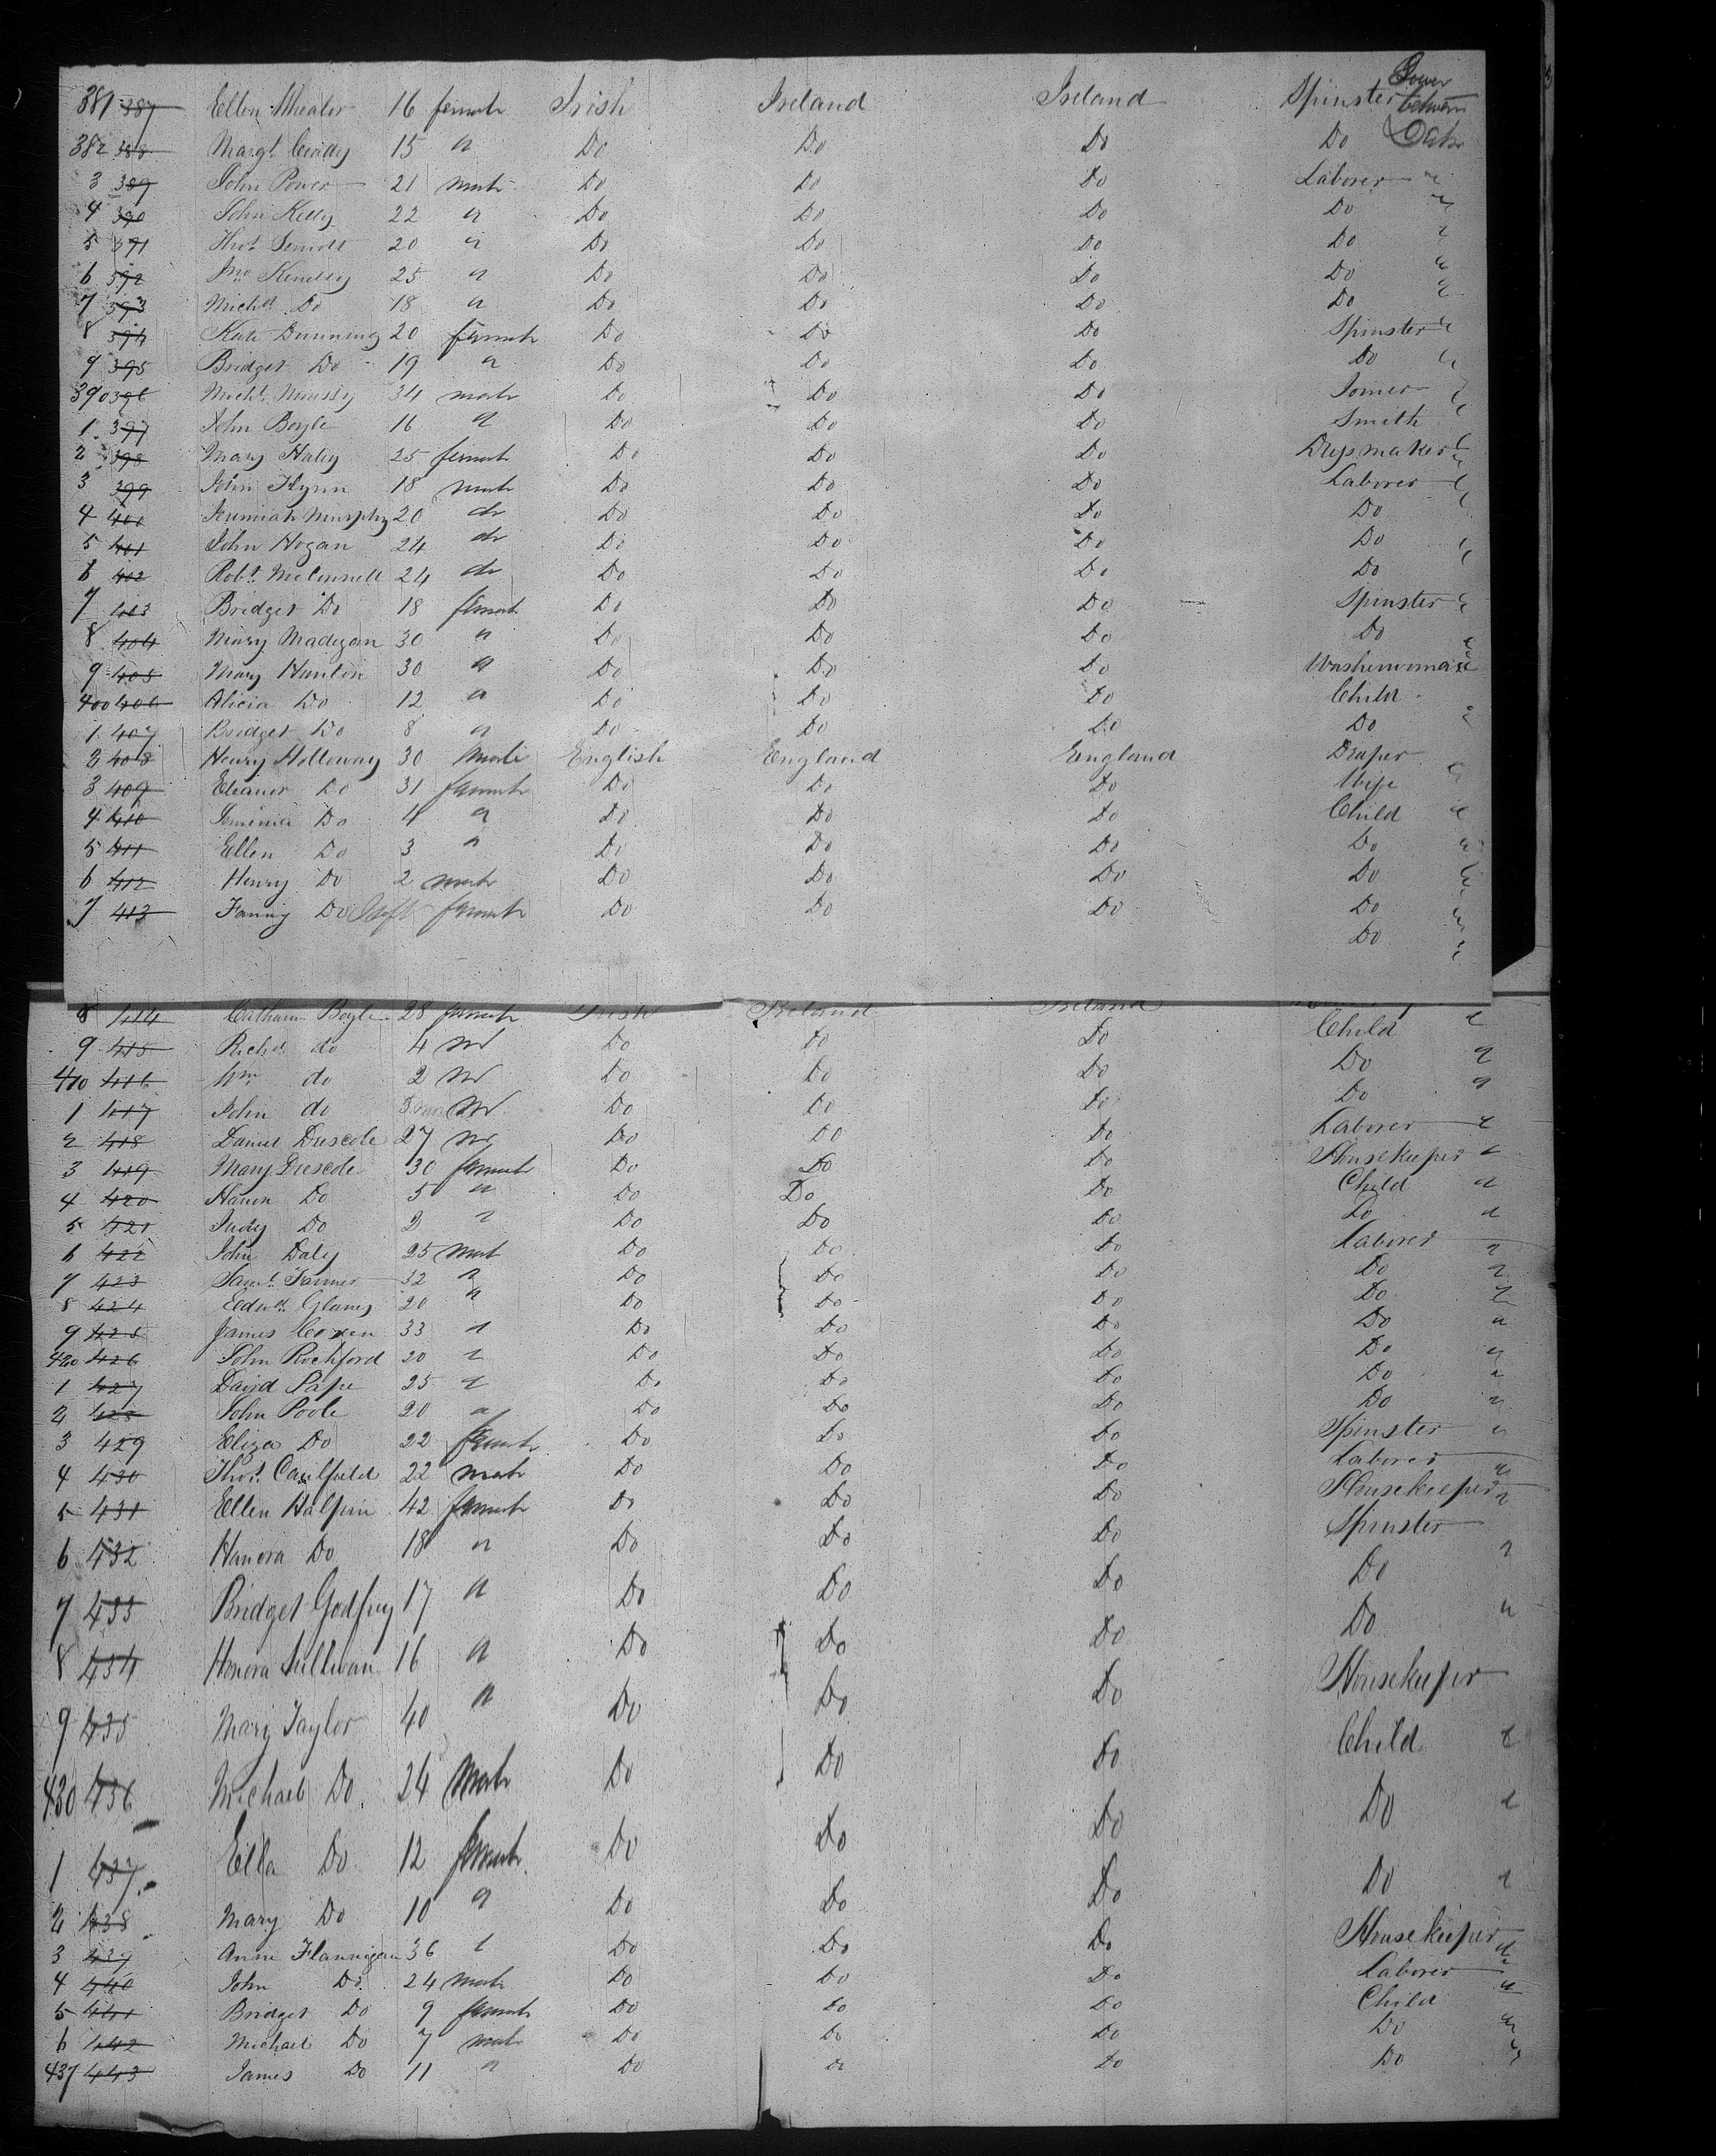 Lower between Decks
381 387 Ellen Wheeler 16 female Irish Ireland Ireland Spinster
382 388 Margt. Cuddy 15 " Do Do Do Do
3 389 John Power 21 male Do Do Do Laborer "
4 390 John Kelly 22 " Do Do Do Do "
5 391 Thos. 20 " Do Do Do Do "
6 392 Jno. Kenelly 25 " Do Do Do Do "
7 393 Michl Do 18 " Do Do Do Do "
8 394 Kate Dunning 20 female Do Do Do Spinster "
9 395 Bridget Do 19 " Do Do Do Do "
390 396 Michl. 34 male Do Do Do Joiner "
1 397 John Boyle 16 " Do Do Do Smith "
2 398 Mary Haley 25 female Do Do Do Dressmaker "
3 399 John Flynn 18 male Do Do Do Laborer "
4 400 Jeremiah Murphy 20 do Do Do Do Do "
5 401 John Hogan 24 do Do Do Do Do "
6 402 Robt. McConnell 24 do Do Do Do Do "
7 403 Bridget Do 18 female Do Do Do Spinster "
8 404 Mary Madigan 30 " Do Do Do Do "
9 405 Mary Hanlon 30 " Do Do Do Washerwoman "
400 406 Alicia Do 12 " Do Do Do Child
1 407 Bridget Do 8 " Do Do Do Do "
2 408 Henry Holloway 30 Male English England England Draper
3 409 Eleanor Do 31 female Do Do Do Wife "
4 410 Jemima Do 4 " Do Do Do Child "
5 411 Ellen Do 3 " Do Do Do Do "
6 412 Henry Do 2 male Do Do Do Do "
7 413 Fanny Do Inft female Do Do Do Do "
Do "
8 414 Catharn Boyle 28 female Irish Ireland Ireland
9 415 Richd do 4 M Do Do Do Child "
410 416 Wm do 2 M Do Do Do Do "
1 417 John do M Do Do Do Do "
2 418 Daniel Driscole 27 M Do Do Do Laborer "
3 419 Mary Driscole 30 female Do Do Do Housekeeper "
4 420 Do 5 " Do Do Do Child "
5 421 Judy Do 2 " Do Do Do Do "
6 422 John Daly 25 male Do Do Do Laborer "
7 423 Saml. 32 " Do Do Do Do "
8 424 Edwd. 20 " Do Do Do Do "
9 425 James 33 " Do Do Do Do "
420 426 John Rochford 20 " Do Do Do Do "
1 427 David Pape 25 " Do Do Do Do "
2 428 John Poole 20 " Do Do Do Do "
3 429 Eliza Do 22 female Do Do Do Spinster "
4 430 Thos. Caulfield 22 male Do Do Do Laborer "
5 431 Ellen Halpin 42 female Do Do Do Housekeeper "
6 432 Hanora Do 18 " Do Do Do Spinster "
7 433 Bridget Godfrey 17 " Do Do Do Do "
8 434 Honora Sullivan 16 " Do Do Do Do
9 435 Mary Taylor 40 " Do Do Do Housekeeper
430 436 Michael Do 24 Male Do Do Do Child "
1 437 Ella Do 12 female Do Do Do Do "
2 438 Mary Do 10 " Do Do Do Do "
3 439 Anne Flannigan 36 " Do Do Do Housekeeper "
4 440 John Do 24 male Do Do Do Laborer "
5 441 Bridget Do 9 female Do Do Do Child
6 442 Michael Do 7 male Do Do Do Do "
437 443 James Do 11 " Do Do Do Do "